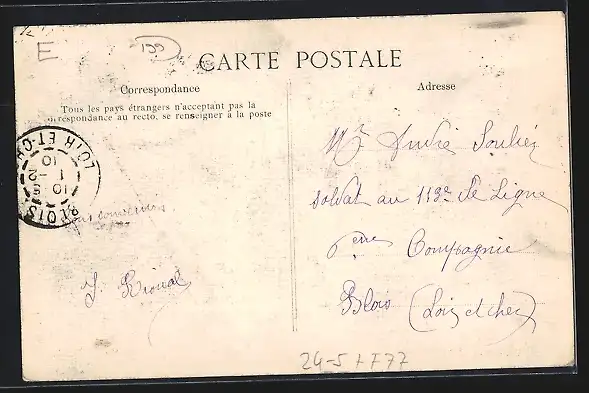 E
199
CARTE POSTALE
Correspondance
Adresse
Tous les pays étrangers n'acceptant pas la
correspondance au recto, se renseigner à la poste
BLOIS LOIR-ET-CH
10
1 -2
10
Mr André Soulier
soldat au 113e de Ligne
6ème Compagnie
Blois (Loir et cher)
24-5